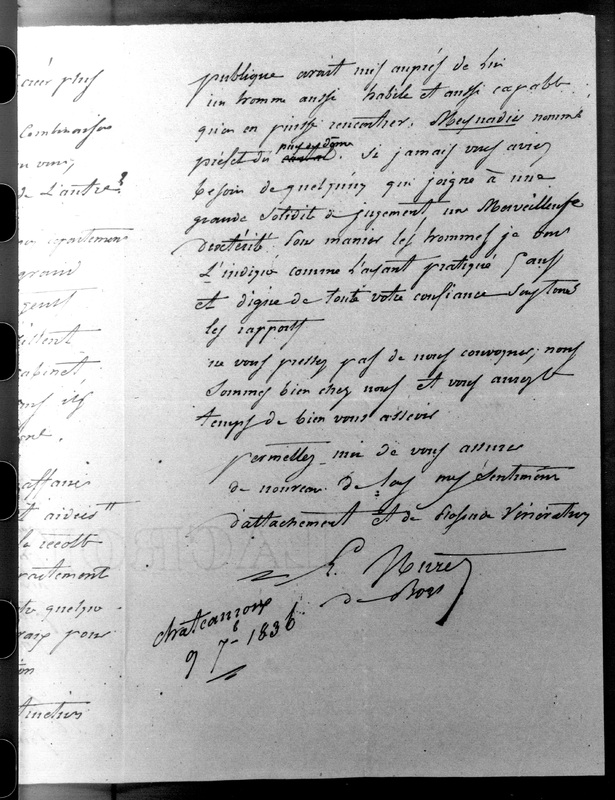 créer plus
Combinaison
de L'autre?
departemens
grand
gent
cabinet
affaires
aider
le recolt
traitement
quelque
pour
publique avait mis auprès de lui
un homme aussi habile et aussi capable
qu'on en puisse rencontrer, Meynadier nommé
préfet du puy de dome. Si jamais vous aviez
besoin de quelqu'un qui joigne à une
grande solidité de jugement, un Merveilleuse
dextérité pour manier les hommes je vous
L'indique comme L'ayant pratiqué 5 ans
et digne de toute votre confiance sous tous
les rapports
ne vous pressez pas de nous convoquer, nous
Sommes bien chez nous et vous aurez le
temps de bien vous asseoir
permettez-moi de vous assurer
de nouveau de tous mes sentimens
d'attachement et de profonde vénération
de Bois
chateauroux
9 7b 1836